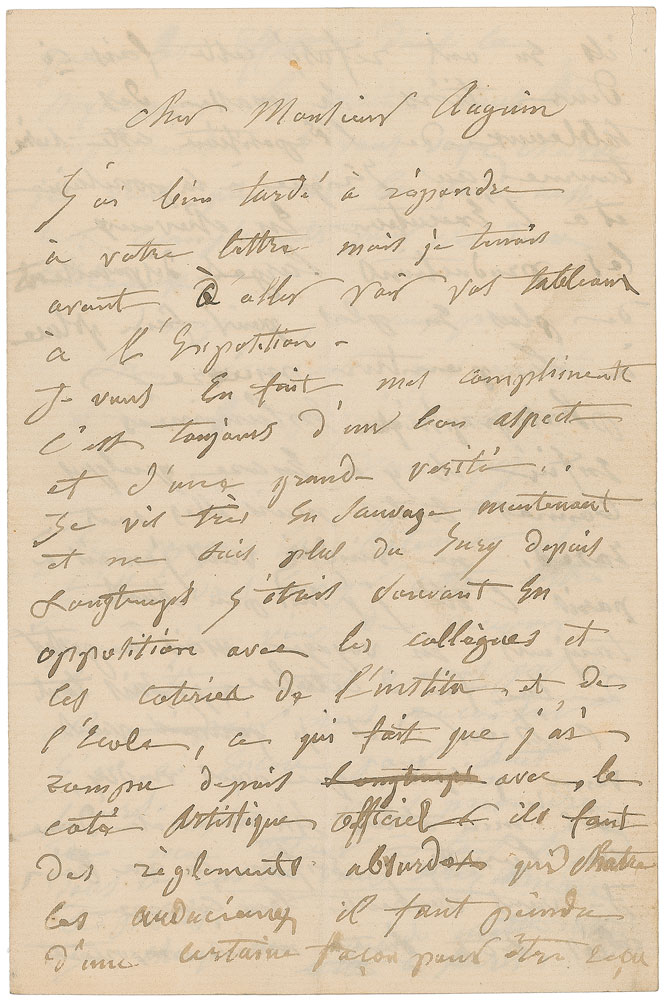 cher Monsieur Auguin
J'ai bien tardé à répondre
à votre lettre mais je tenais
avant à aller voir vos tableaux
à l'Exposition –
Je vous en fait mes compliments
c'est toujours d'un bon aspect
et d'une grande verité...
Je vis très en sauvage maintenant
et ne suis plus du Jury depuis
Longtemps j'étais souvent en
opposition avec les collègues et
les coteries de l'institu et de
l'Ecole, ce qui fait que j'ai
rompu depuis Longtemps avec le
coté Artistique officiel ils font
des règlements absurdes qui
les audacieux il faut peindre
d'une certaine façon pour être reçu